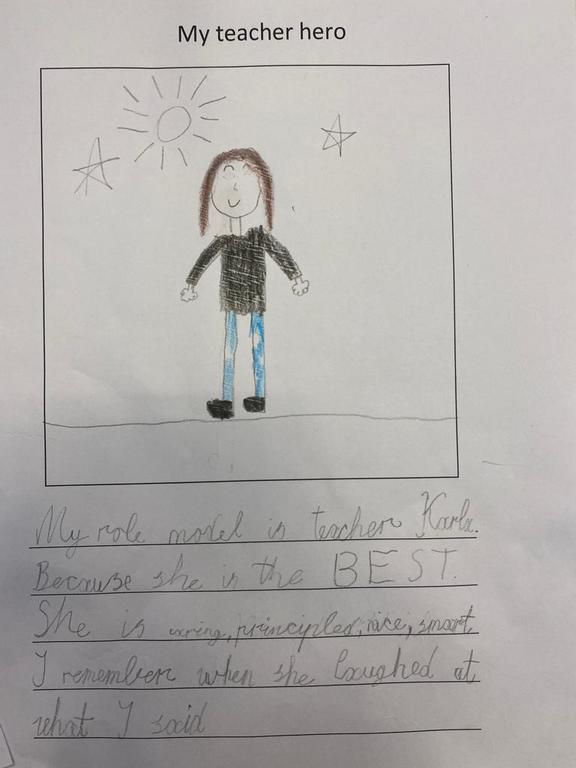 My teacher hero
My role model is teacher Karla.
Because she is the BEST.
She is caring, principled, nice, smart.
I remember when she laughed at
what I said